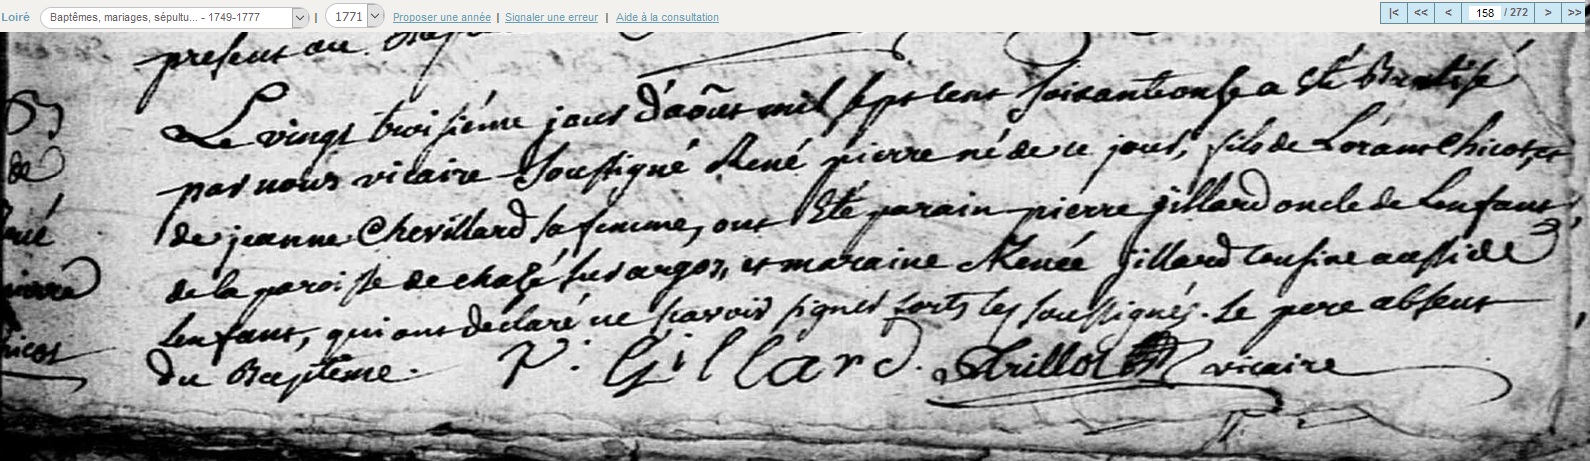 Loiré Baptêmes, mariages, sépultu... - 1749-1777 | 1771 Proposer une année | Signaler une erreur | Aide à la consultation |< << < 158 / 272 > >>
present au
Le vingt troisiéme jour d'août mil sept cent soixante onze a été Baptisé
par nous vicaire soussigné René pierre né de ce jour, fils de Loran Chicot, et
de jeanne Chevillard sa femme, ont Eté parain pierre jillard oncle de Lenfant,
de la paroisse de chazé sur argos, et maraine Renée jillard cousine aussi de
Lenfant, qui ont declaré ne scavoir signer forts les soussignés. Le pere absent
du Baptême. P. Gillard. Trillot vicaire